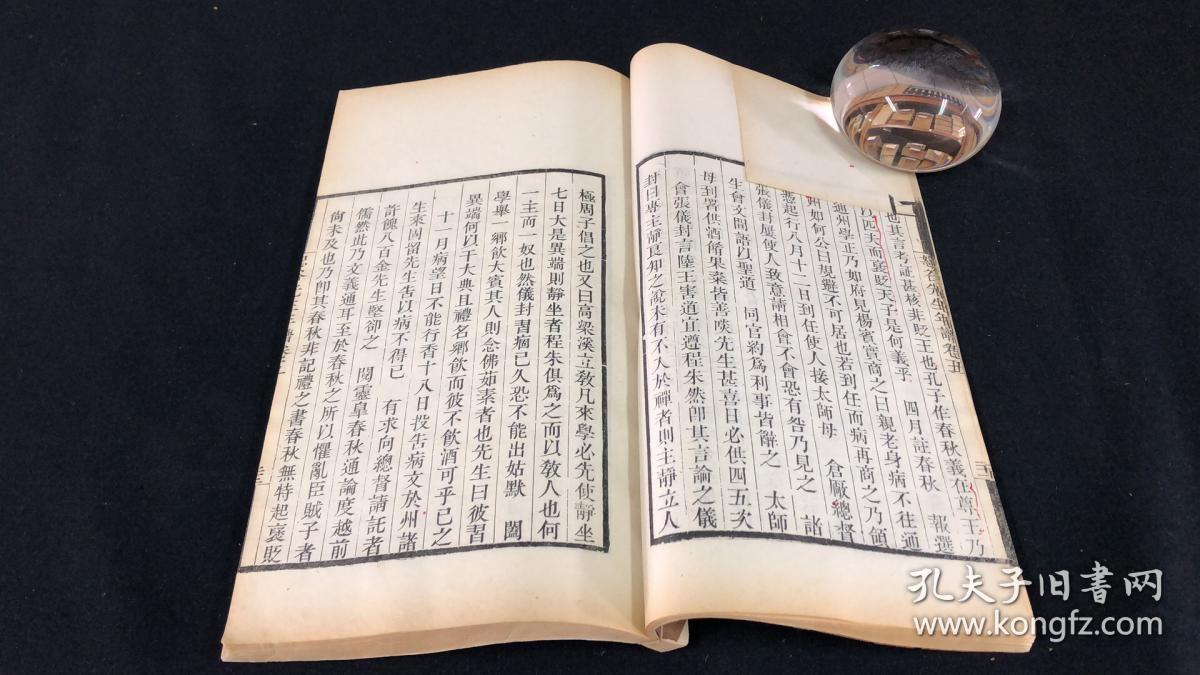 也其言考証甚核非貶王也孔子作春秋義在尊王乃
以匹夫而襃貶天子是何義乎　四月註春秋　報選
通州學正乃如府見楊賓實商之曰親老身病不往通
州如何公曰規避不可居也若到任而病再商之乃領
憑起行八月十二日到任使人接太師母　倉厰總督
張儀封屡使人致意請相會不會恐有咎乃見之　諸
生會文間語以聖道　同官約爲利事皆辭之　太師
母到署供酒餚果菜皆善啖先生甚喜日必供四五次
會張儀封言陸王害道宜遵程朱然卽其言論之儀
封曰專主靜良知之說未有不入於禪者則主靜立人
極周子倡之也又曰高梁溪立教凡來學必先使靜坐
七日大是異端則靜坐者程朱俱爲之而以教人也何
一主而一奴也然儀封習痼已久恐不能出姑默　闔
學舉一鄉飲大賓其人則念佛茹素者也先生曰彼習
異端何以干大典且禮名鄉飲而彼不飲酒可乎已之
十一月病望日不能行香十八日投告病文於州諸
生來固留先生告以病不得已　有求向總督請託者
許餽八百金先生堅卻之　閱靈皐春秋通論度越前
儒然此乃文義通耳至於春秋之所以懼亂臣賊子者
尙未及也乃卽其春秋非記禮之書春秋無特起襃貶
孔夫子旧书网
www.kongfz.com